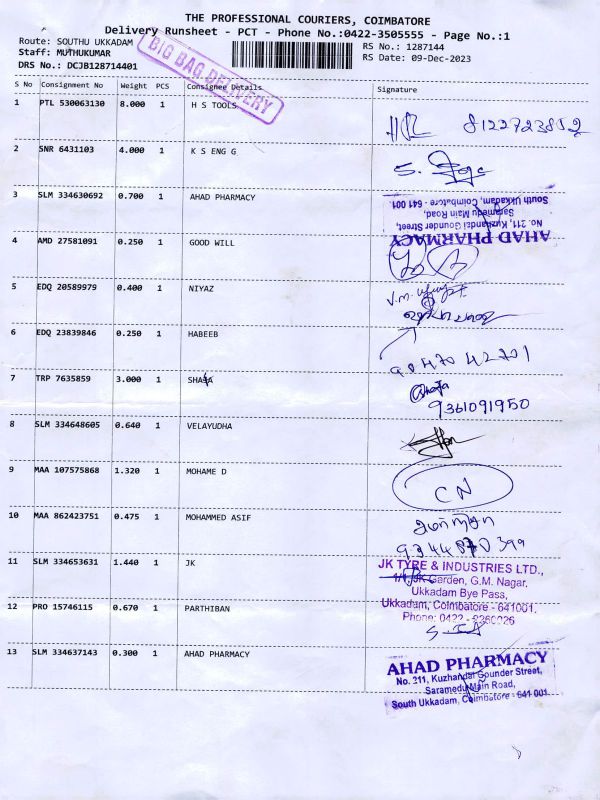 THE PROFESSIONAL COURIERS, COIMBATORE
Delivery Runsheet - PCT - Phone No.:0422-3505555 - Page No.:1
Route: SOUTHU UKKADAM
Staff: MUTHUKUMAR
DRS No.: DCJB128714401
BIG BAG DELIVERY
RS No.: 1287144
RS Date: 09-Dec-2023
S No Consignment No Weight PCS Consignee Details Signature
1 PTL 530063130 8.000 1 H S TOOLS 8122723852
2 SNR 6431103 4.000 1 K S ENG G
3 SLM 334630692 0.700 1 AHAD PHARMACY
AHAD PHARMACY
No. 211, Kuzhandai Gounder Street,
Saramedu Main Road,
South Ukkadam, Coimbatore - 641 001.
4 AMD 27581091 0.250 1 GOOD WILL
5 EDQ 20589979 0.400 1 NIYAZ
6 EDQ 23839846 0.250 1 HABEEB
7 TRP 7635859 3.000 1 SHAJA
9361091950
8 SLM 334648605 0.640 1 VELAYUDHA
9 MAA 107575868 1.320 1 MOHAME D CN
10 MAA 862423751 0.475 1 MOHAMMED ASIF
11 SLM 334653631 1.440 1 JK
JK TYRE & INDUSTRIES LTD.,
Garden, G.M. Nagar,
Ukkadam Bye Pass,
Ukkadam, Coimbatore - 641001.
Phone: 0422 -
12 PRO 15746115 0.670 1 PARTHIBAN
13 SLM 334637143 0.300 1 AHAD PHARMACY
AHAD PHARMACY
No. 211, Kuzhandai Gounder Street,
Saramedu Main Road,
South Ukkadam, Coimbatore - 641 001.